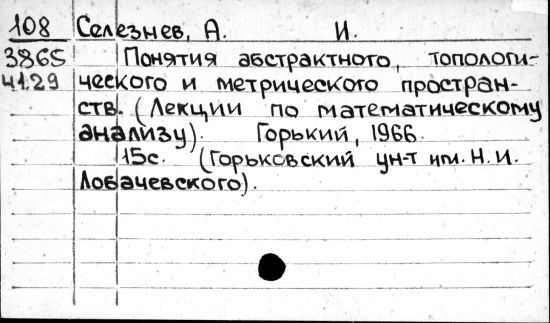 108 Селезнев, А. И.
3865 Понятия абстрактного, топологи-
4129 ческого и метрического простран-
ств. (Лекции по математическому
анализу). Горький, 1966.
15с. (Горьковский ун-т им. Н. И.
Лобачевского).